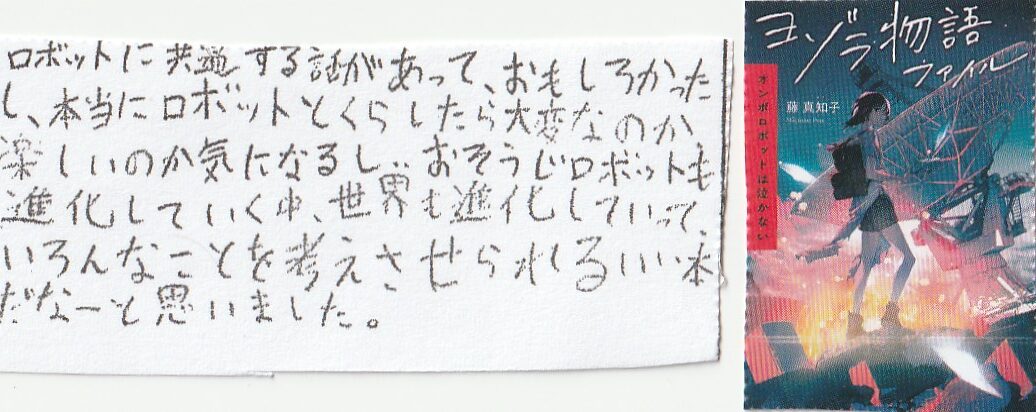 ロボットに共通する話があって、おもしろかった
し、本当にロボットとくらしたら大変なのか、
楽しいのか気になるし、おそうじロボットも
進化していく中、世界も進化していって、
いろんなことを考えさせられるいい本
だなーと思いました。
ヨゾラ物語
ファイル
藤 真知子
オンボロボットは泣かない